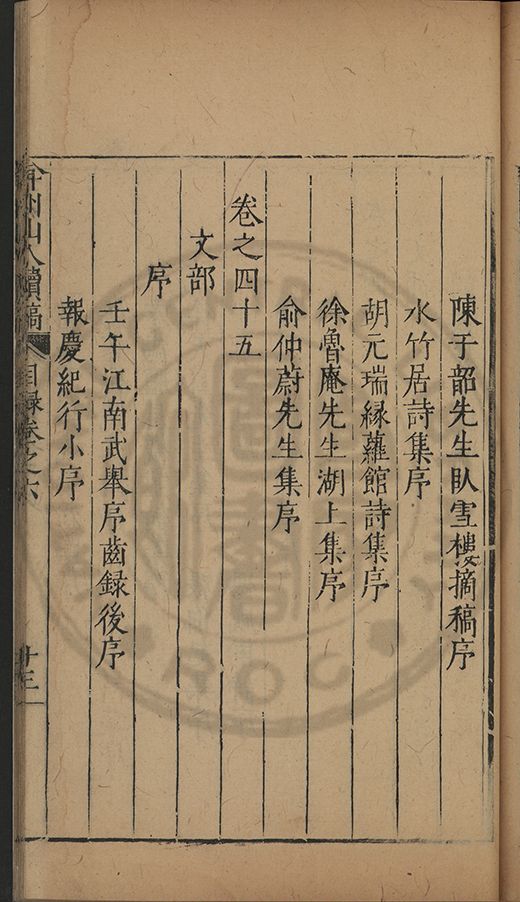 陳于韶先生臥雪樓摘稿序
水竹居詩集序
胡元瑞緑蘿館詩集序
徐魯庵先生湖上集序
俞仲蔚先生集序
卷之四十五
文部
序
壬午江南武舉序齒録後序
報慶紀行小序
弇州山人續稿 目録卷之六 廿三